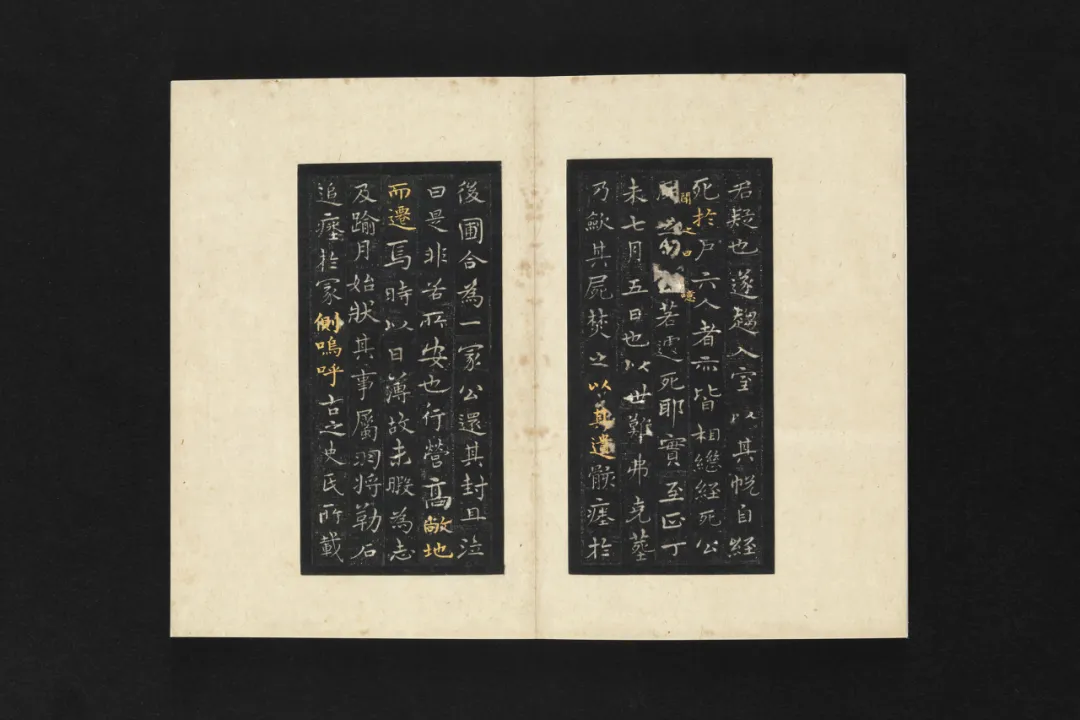 君疑也遂趨入室以其帨自經
死於户六人者亦皆相繼經死公
聞之曰噫
若遽死耶實至正丁
未七月五日也以世難弗克塟
乃歛其屍焚之以其遺骸瘞於
後圃合為一冢公還其封且泣
曰是非若所安也行營高敞地
而遷焉時以日薄故未暇為志
及踰月始狀其事屬羽將勒石
追瘞於冢側嗚呼古之史氏所載